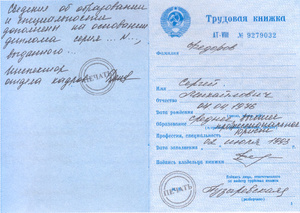 Сведения об образовании
и специальности
дополнены на основании
диплома серия ... N...,
выданного.
Инспектор
отдела кадров
ПЕЧАТЬ
Трудовая книжка
AT-VIII № 9279032
Фамилия Федоров
Имя Сергей
Отчество Михайлович
Дата рождения 04.04.1976
Образование среднее,
профессиональное
Профессия, специальность юрист
Дата заполнения 02 июля 1993
Подпись владельца книжки
Подпись лица, ответственного
за выдачу трудовых книжек
ПЕЧАТЬ
(разборчиво)